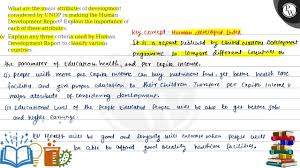 What are the major attributes of development
considered by UNDP in making the Human
Development Report? Explain the importance of
each of these attributes.
Or Explain any three criteria used by Human
Development Report to classify various
countries.
Key concept - Human Developed Index
It is a report published by United Nations Development
programme to compare different countries on
the parameter of Education, health, and per capita income.
(i) people with more per capita income can buy nutritional food, get better health care
facilities and give proper education to their children. Therefore per Capita Income is
major attributes of considering development.
(ii) Educational level of the people Educated People will be able to get better jobs
and higher earnings
Health will be good and longevity will increase when people will
be able to afford good quality healthcare facilities.